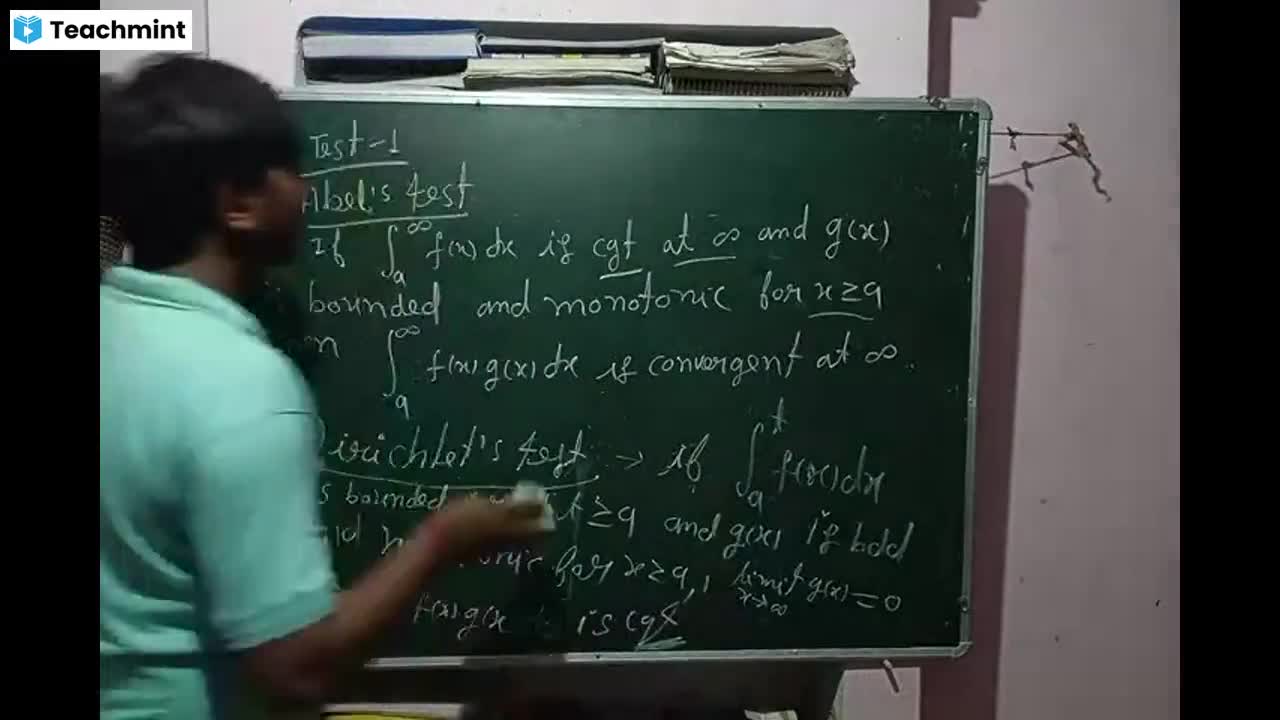 Teachmint
Test-1
Abel's test
If ∫_a^∞ f(x) dx is cgt at ∞ and g(x)
bounded and monotonic for x≥a
∫_a^∞ f(x) g(x) dx is convergent at ∞.
Dirichlet's test → if ∫_a^t f(x) dx
bounded t≥a and g(x) is bdd
for x≥a, limit x→∞ g(x) = 0
f(x) g(x is cgt